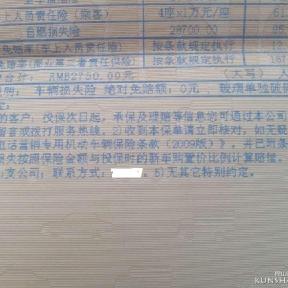 车上人员责任险(乘客) 4座×1万元/座
自燃损失险 28700.00
车上人员责任险) 按条款规定执行
第三者责任保险) 按条款规定执行
合计: RMB2750.00元 (大写) 人
车辆损失险 绝对免赔额:0元, 玻璃单独破
的客户,投保次日起,承保及理赔等信息您可通过本公司
留言或拨打服务热线。2)收到本保单请立即核对,如无载
电话营销专用机动车辆保险条款(2009版)》,并已将条
损失按照保险金额与投保时的轿车购置价比例计算赔偿。
支公司;联系方式: 。5)无其它特别约定。
KUNSHA